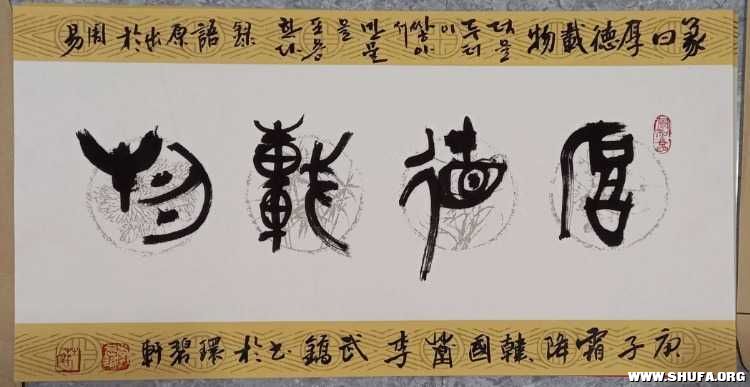 彖曰厚德載物 덕을 두터이 쌓아서 만물을 포용한다 錄語原出於周易
厚德載物
庚子霜降韓國艸堂李武鎬書於環碧軒
WWW.SHUFA.ORG